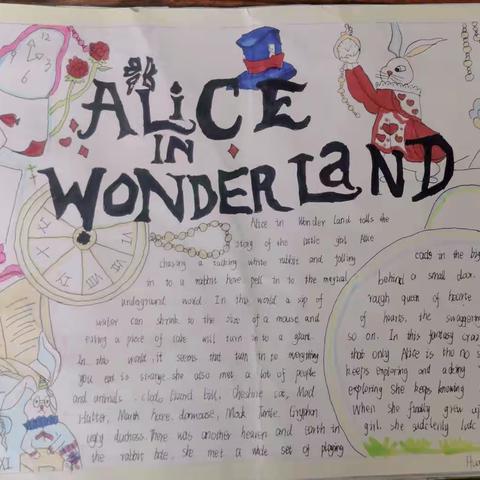 ALiCE
IN
WONDERLaND
Alice in Wonder Land tells the
story of the little girl Alice
chasing a talking white rabbit and falling
in to a rabbit here fell in to the magical
undground world. In this world a sip of
water can shrink to the size of a mouse and
eating a piece of cake will turn in to a giant.
In this world, it seems that turn in to everything
you eat is strange. she also met a lot of people
and animals. dodo, lizard bill, Cheshire cat, Mad
Hatter, March Heare, dormouse, Mock Turtle. Gryphon
ugly duchess. There was another heaven and earth in
the rabbit hole, she met a wide set of playing
cards in the big
behind a small door.
rough queen of hearte
of hearts, the swaggering
so on. In this fantasy crazy
that only Alice is the no s
keeps exploring and
exploring she keeps knowing
When she finally grew up
girl. she suddenly
12
3
6
I
II
VII
VIII
IX
X
XI